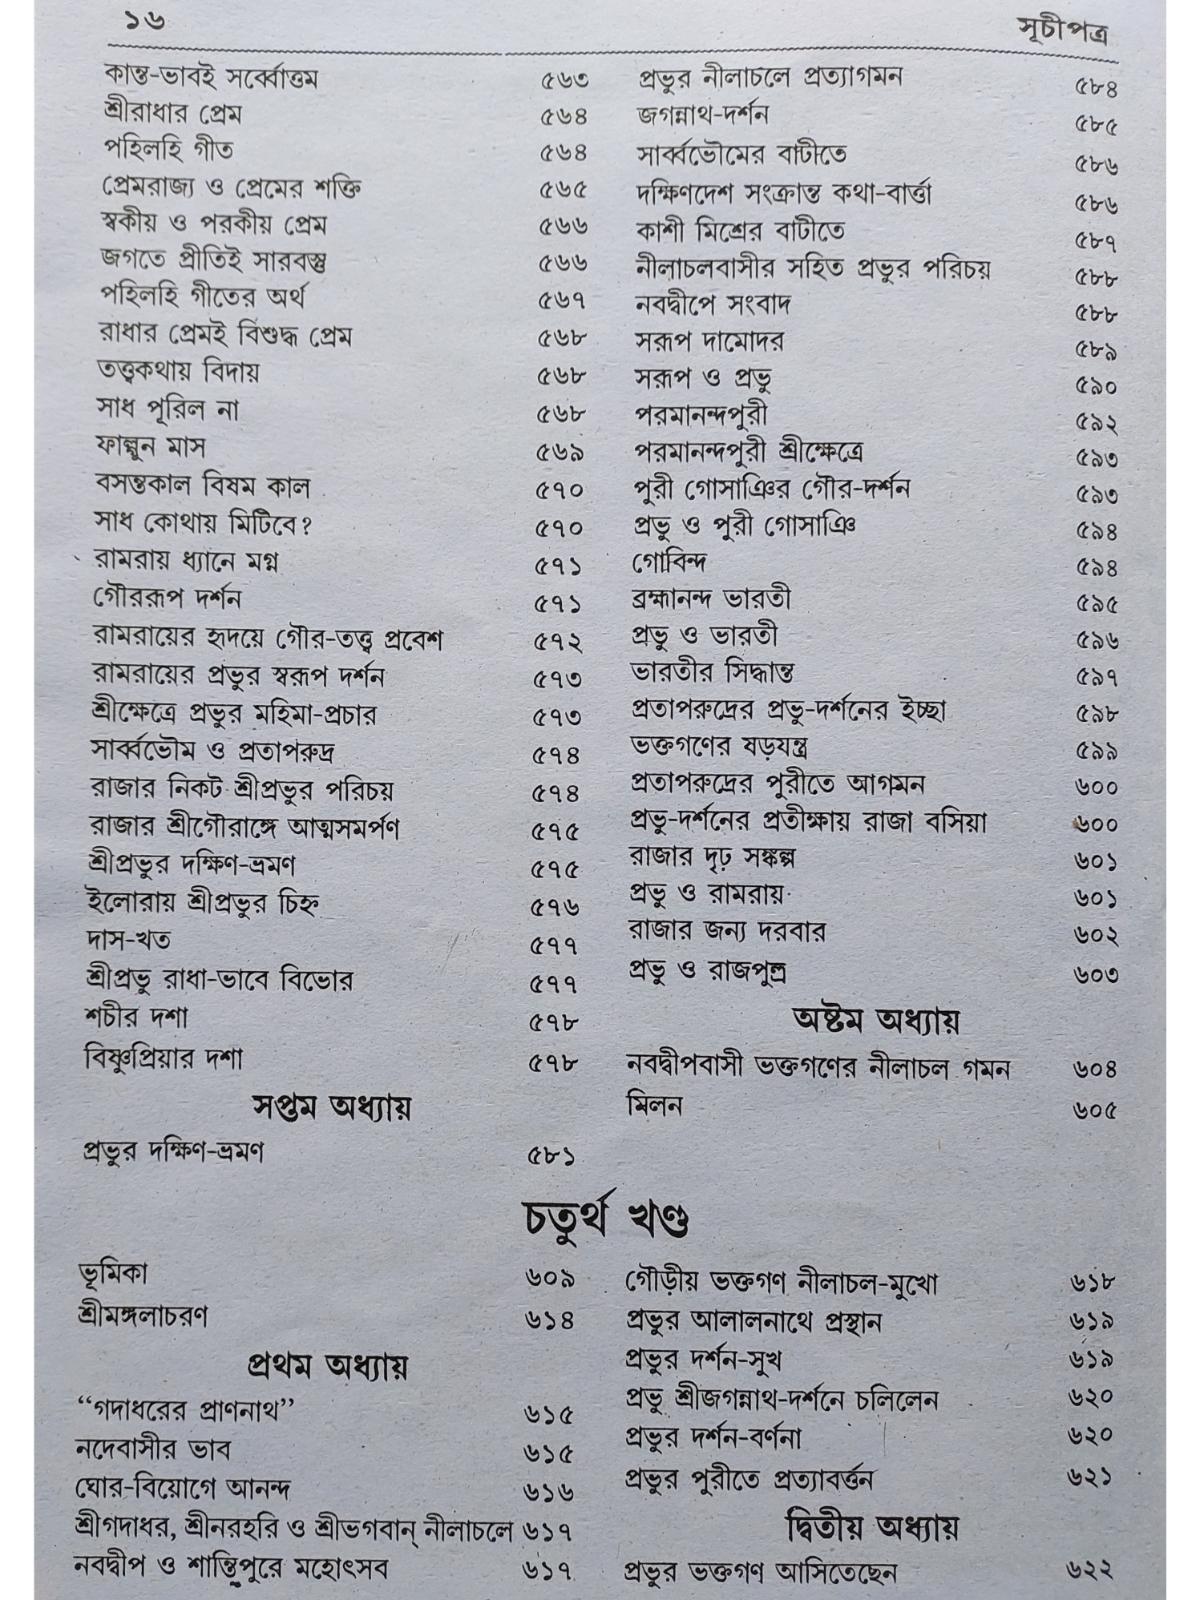 ১৬ সূচীপত্র
কান্ত-ভাবই সর্ব্বোত্তম ৫৬৩
শ্রীরাধার প্রেম ৫৬৪
পহিলহি গীত ৫৬৪
প্রেমরাজ্য ও প্রেমের শক্তি ৫৬৫
স্বকীয় ও পরকীয় প্রেম ৫৬৬
জগতে প্রীতিই সারবস্তু ৫৬৬
পহিলহি গীতের অর্থ ৫৬৭
রাধার প্রেমই বিশুদ্ধ প্রেম ৫৬৮
তত্ত্বকথায় বিদায় ৫৬৮
সাধ পূরিল না ৫৬৮
ফাল্গুন মাস ৫৬৯
বসন্তকাল বিষম কাল ৫৭০
সাধ কোথায় মিটিবে? ৫৭০
রামরায় ধ্যানে মগ্ন ৫৭১
গৌররূপ দর্শন ৫৭১
রামরায়ের হৃদয়ে গৌর-তত্ত্ব প্রবেশ ৫৭২
রামরায়ের প্রভুর স্বরূপ দর্শন ৫৭৩
শ্রীক্ষেত্রে প্রভুর মহিমা-প্রচার ৫৭৩
সার্ব্বভৌম ও প্রতাপরুদ্র ৫৭৪
রাজার নিকট শ্রীপ্রভুর পরিচয় ৫৭৪
রাজার শ্রীগৌরাঙ্গে আত্মসমর্পণ ৫৭৫
শ্রীপ্রভুর দক্ষিণ-ভ্রমণ ৫৭৫
ইলোরায় শ্রীপ্রভুর চিহ্ন ৫৭৬
দাস-খত ৫৭৭
শ্রীপ্রভু রাধা-ভাবে বিভোর ৫৭৭
শচীর দশা ৫৭৮
বিষ্ণুপ্রিয়ার দশা ৫৭৮
সপ্তম অধ্যায়
প্রভুর দক্ষিণ-ভ্রমণ ৫৮১
প্রভুর নীলাচলে প্রত্যাগমন ৫৮৪
জগন্নাথ-দর্শন ৫৮৫
সার্ব্বভৌমের বাটীতে ৫৮৬
দক্ষিণদেশ সংক্রান্ত কথা-বার্ত্তা ৫৮৬
কাশী মিশ্রের বাটীতে ৫৮৭
নীলাচলবাসীর সহিত প্রভুর পরিচয় ৫৮৮
নবদ্বীপে সংবাদ ৫৮৮
সরূপ দামোদর ৫৮৯
সরূপ ও প্রভু ৫৯০
পরমানন্দপুরী ৫৯২
পরমানন্দপুরী শ্রীক্ষেত্রে ৫৯৩
পুরী গোসাঞির গৌর-দর্শন ৫৯৩
প্রভু ও পুরী গোসাঞি ৫৯৪
গোবিন্দ ৫৯৪
ব্রহ্মানন্দ ভারতী ৫৯৫
প্রভু ও ভারতী ৫৯৬
ভারতীর সিদ্ধান্ত ৫৯৭
প্রতাপরুদ্রের প্রভু-দর্শনের ইচ্ছা ৫৯৮
ভক্তগণের ষড়যন্ত্র ৫৯৯
প্রতাপরুদ্রের পুরীতে আগমন ৬০০
প্রভু-দর্শনের প্রতীক্ষায় রাজা বসিয়া ৬০০
রাজার দৃঢ় সঙ্কল্প ৬০১
প্রভু ও রামরায় ৬০১
রাজার জন্য দরবার ৬০২
প্রভু ও রাজপুত্র ৬০৩
অষ্টম অধ্যায়
নবদ্বীপবাসী ভক্তগণের নীলাচল গমন ৬০৪
মিলন ৬০৫
চতুর্থ খণ্ড
ভূমিকা ৬০৯
শ্রীমঙ্গলাচরণ ৬১৪
প্রথম অধ্যায়
“গদাধরের প্রাণনাথ” ৬১৫
নদেবাসীর ভাব ৬১৫
ঘোর-বিয়োগে আনন্দ ৬১৬
শ্রীগদাধর, শ্রীনরহরি ও শ্রীভগবান্ নীলাচলে ৬১৭
নবদ্বীপ ও শান্তিপুরে মহোৎসব ৬১৭
গৌড়ীয় ভক্তগণ নীলাচল-মুখো ৬১৮
প্রভুর আলালনাথে প্রস্থান ৬১৯
প্রভুর দর্শন-সুখ ৬১৯
প্রভু শ্রীজগন্নাথ-দর্শনে চলিলেন ৬২০
প্রভুর দর্শন-বর্ণনা ৬২০
প্রভুর পুরীতে প্রত্যাবর্ত্তন ৬২১
দ্বিতীয় অধ্যায়
প্রভুর ভক্তগণ আসিতেছেন ৬২২